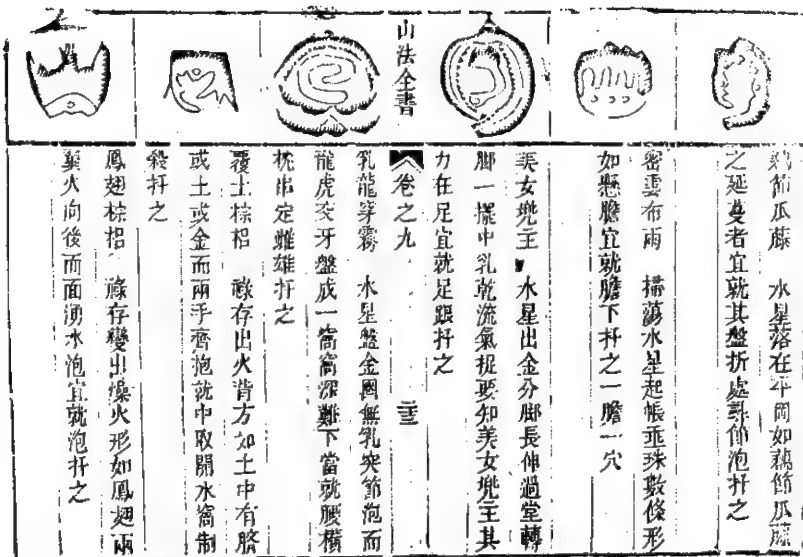 藕節瓜藤　水星落在平岡如藕節瓜藤
之延蔓者宜就其盤折處尋節泡扦之
密雲布雨　掃蕩水星起帳垂珠數條形
如懸膽宜就膽下扦之一膽一穴
美女兜主　水星出金分脚長伸過堂轉
脚一擺中乳乾流氣捉要知美女兜主其
力在足宜就足跟扦之
山法全書
卷之九
乳龍穿霧　水星盤金圓無乳突節泡而
龍虎交牙盤成一窩窩深難下當就腰橫
枕串定雌雄扦之
覆土棕梠　祿存出火背方如土中有臍
或土或金而兩乎齊抱就中取開水窩制
殺扦之
鳳翅棕梠　祿存變出燥火形如鳳翅兩
翼火向後而面湧水泡宜就泡扦之